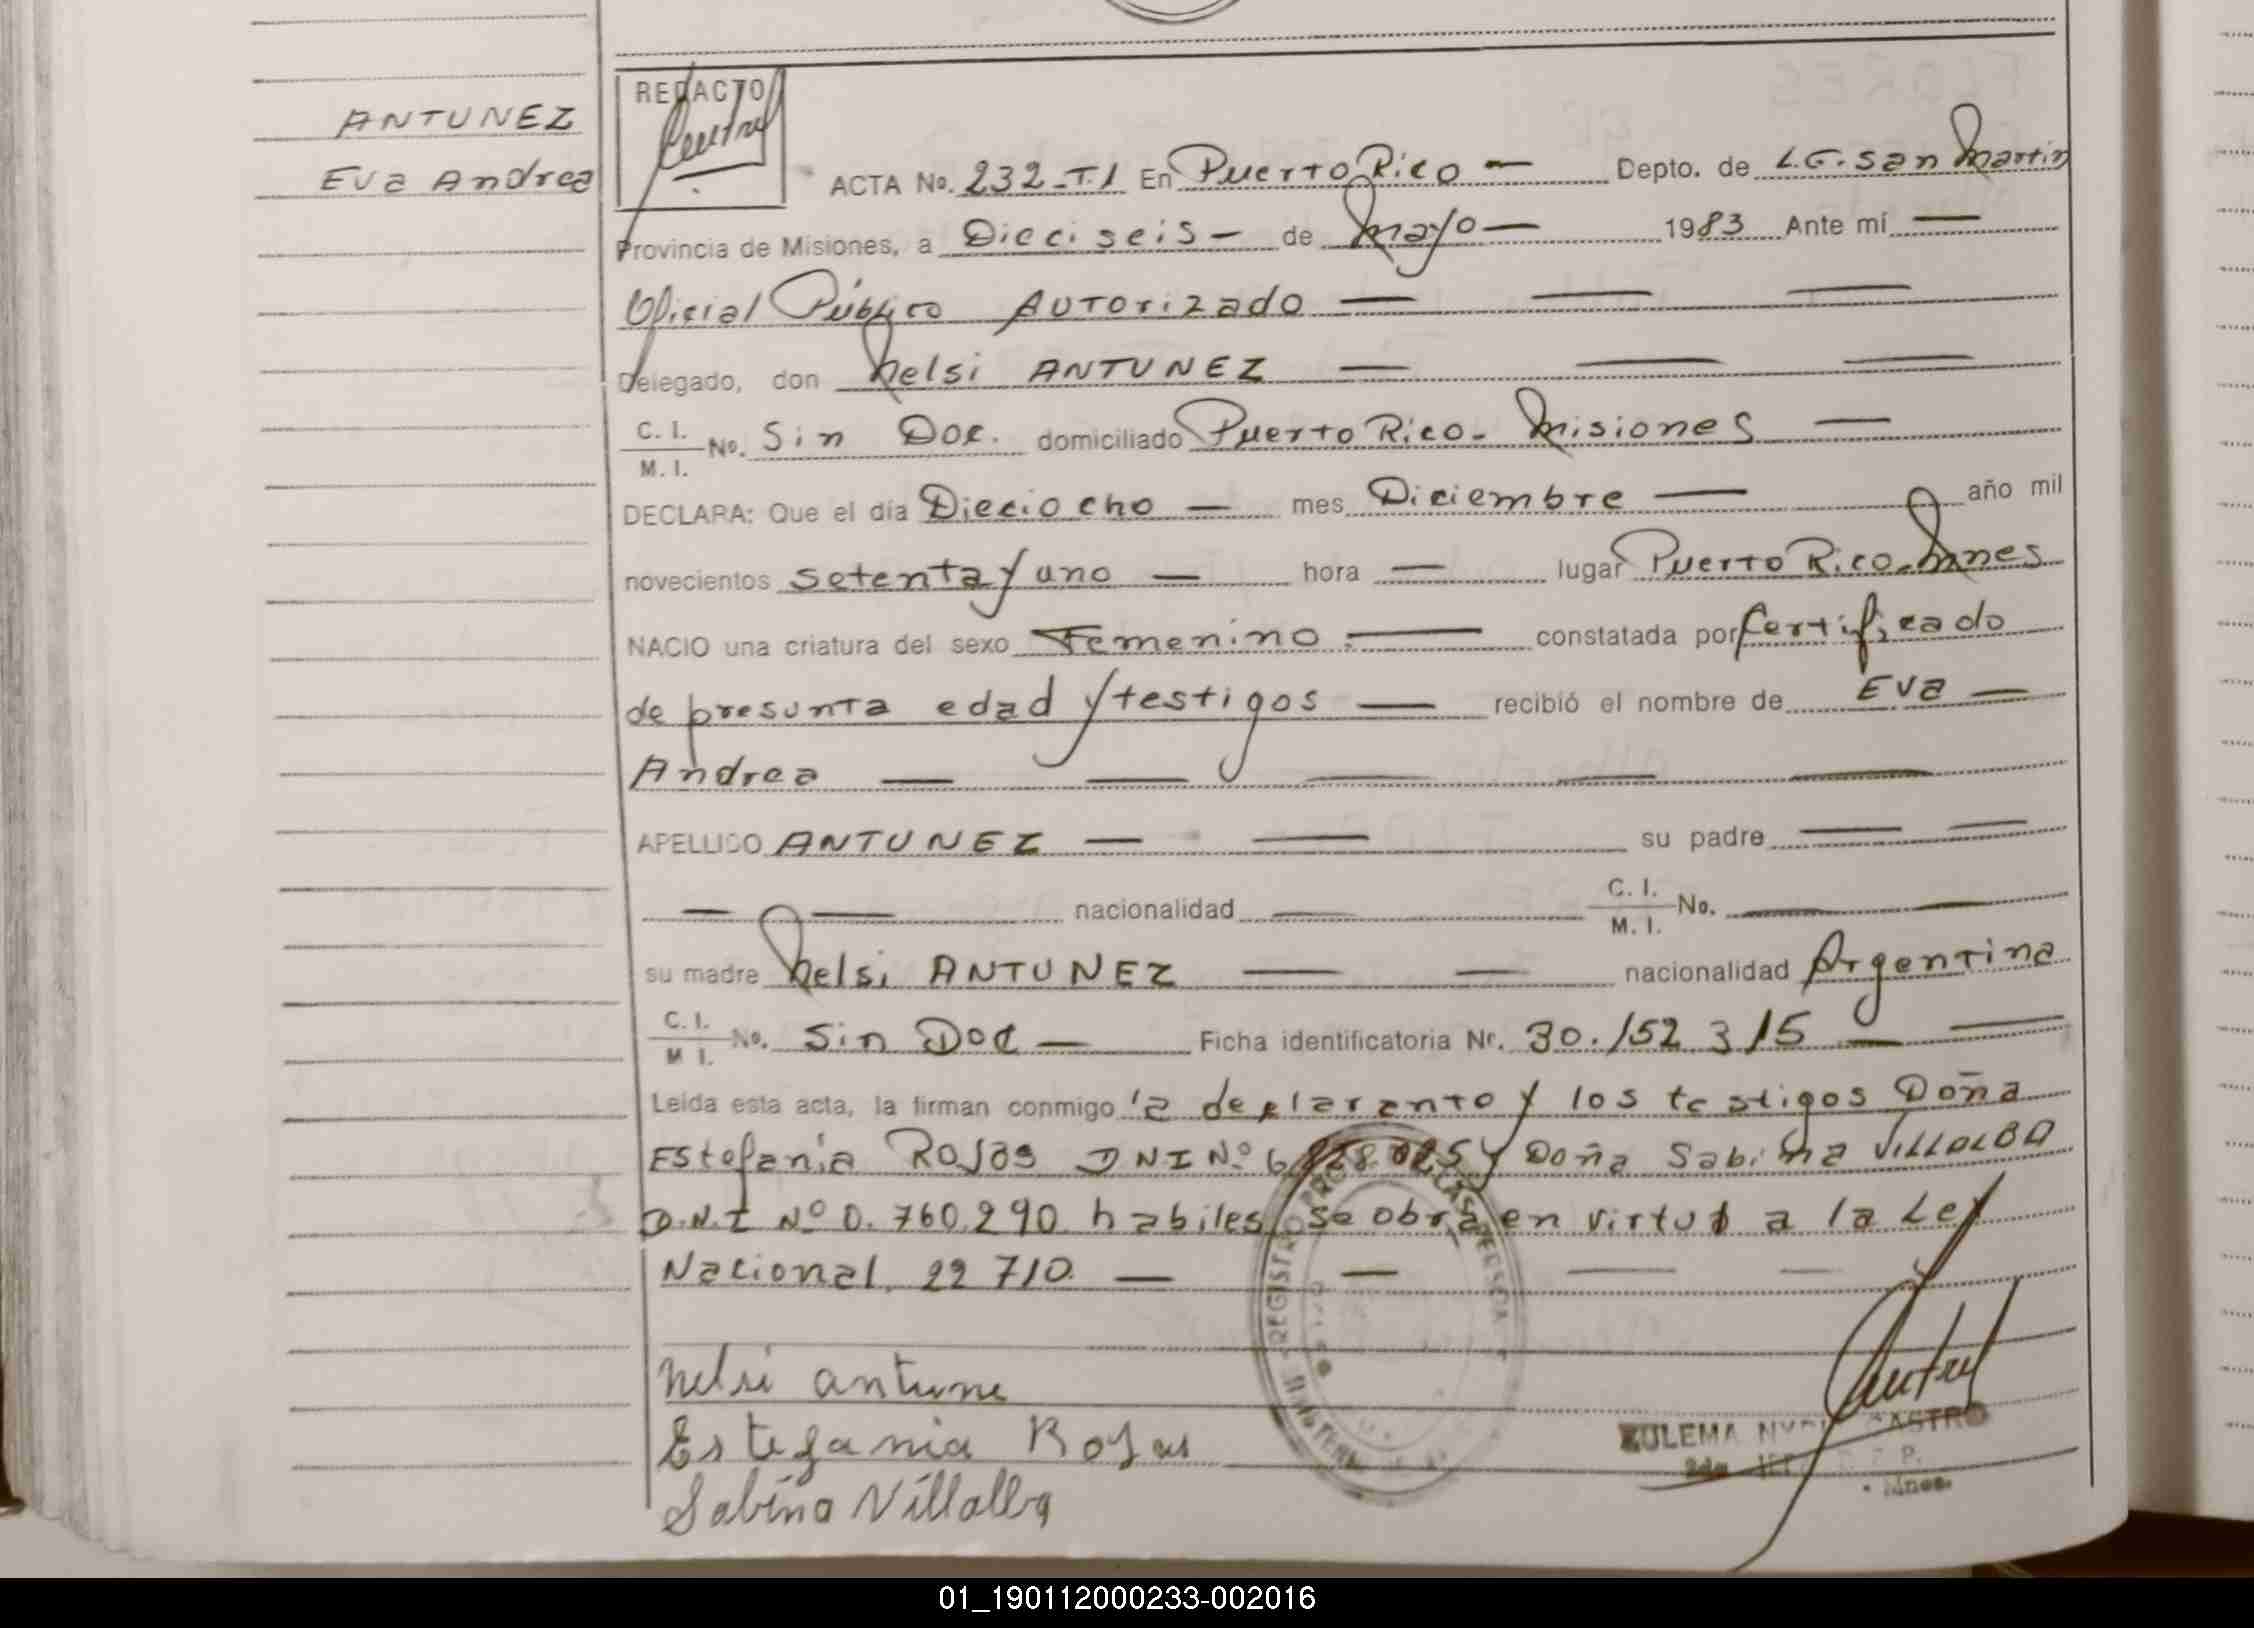 ANTUNEZ
Eva Andrea
REDACTO
ACTA No. 232-T.I En Puerto Rico — Depto. de L.G. San Martin
Provincia de Misiones, a Dieciseis — de Mayo — 1983 Ante mí —
Oficial Público AUTORIZADO — — —
Delegado, don Nelsi ANTUNEZ — — —
C. I. / M. I. No. Sin Doc. domiciliado Puerto Rico - Misiones —
DECLARA: Que el día Dieciocho — mes Diciembre — año mil
novecientos setenta y uno — hora — lugar Puerto Rico - Mnes
NACIO una criatura del sexo Femenino. — constatada por Certificado
de presunta edad y testigos — recibió el nombre de Eva —
Andrea — — — — —
APELLIDO ANTUNEZ — — su padre — —
— — nacionalidad — C. I. / M. I. No. — —
su madre Nelsi ANTUNEZ — — nacionalidad Argentina
C. I. / M I. No. Sin Doc — Ficha identificatoria Nr. 30.152 315 — —
Leida esta acta, la firman conmigo la declarante y los testigos Doña
Estefania Rojas DNI Nº y Doña Sabina VILLALBA
D.N.I Nº 0.760.290 habiles, se obra en virtud a la Ley
Nacional 22 710. — — — —
Nelsi antune
Estefania Rojas
Sabina Villalba
REGISTRO
ZULEMA CASTRO
Mnes.
01_190112000233-002016